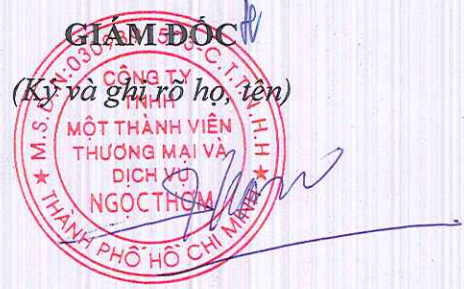 GIÁM ĐỐC
(Ký và ghi rõ họ, tên)
CÔNG TY
TNHH
MỘT THÀNH VIÊN
THƯƠNG MẠI VÀ
DỊCH VỤ
NGỌC THƠM
THÀNH PHỐ HỒ CHÍ MINH